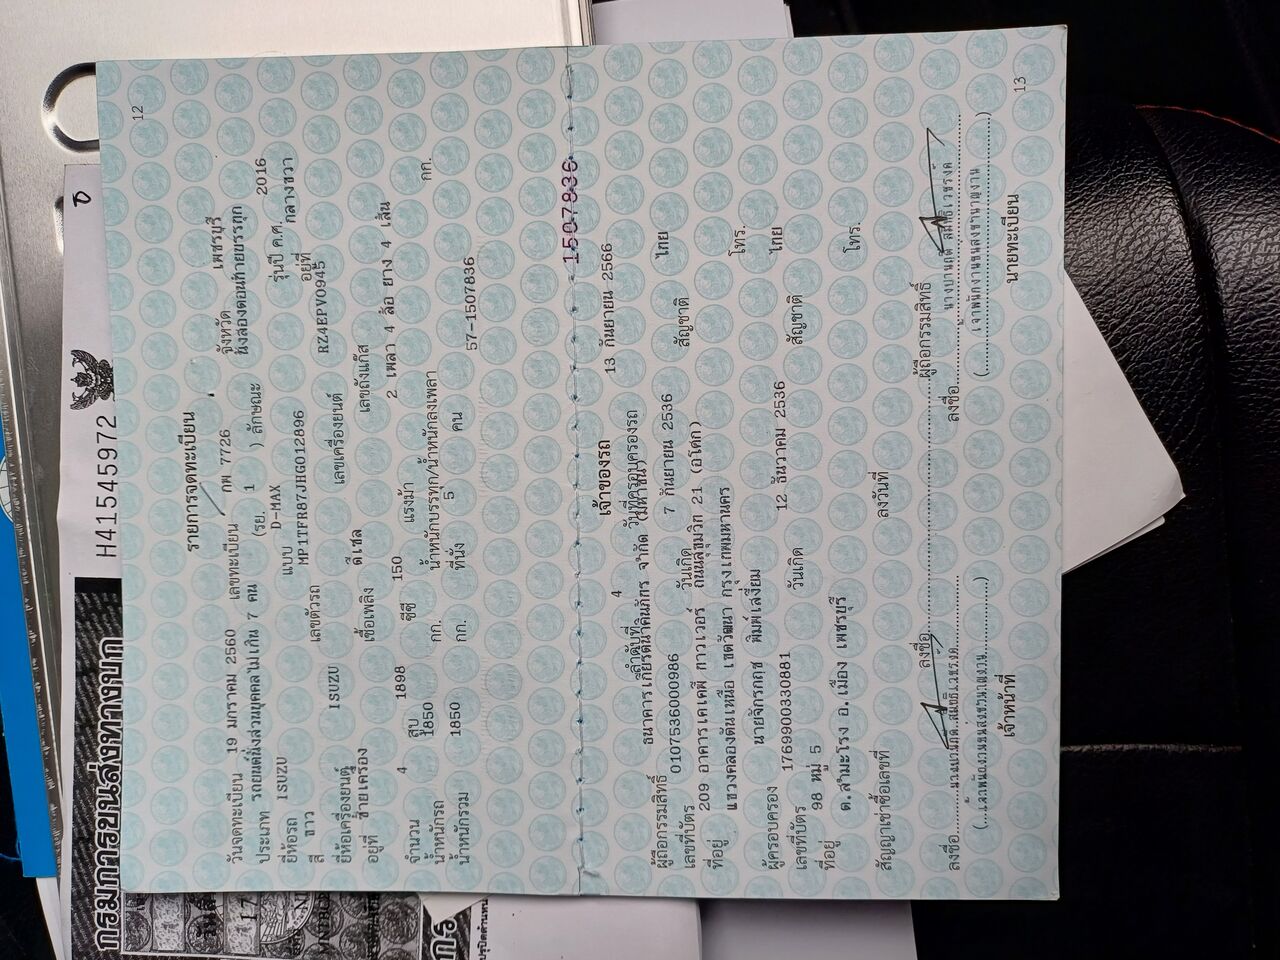 12
รายการจดทะเบียน
วันจดทะเบียน 19 มกราคม 2560 เลขทะเบียน กพ 7726 จังหวัด เพชรบุรี
ประเภท รถยนต์นั่งส่วนบุคคลไม่เกิน 7 คน (รย. 1 ) ลักษณะ นั่งสองตอนท้ายบรรทุก
ยี่ห้อรถ ISUZU แบบ D-MAX รุ่นปี ค.ศ. 2016
สี ขาว เลขตัวรถ MP1TFR87JHG012896 อยู่ที่ กลางขวา
ยี่ห้อเครื่องยนต์ ISUZU เลขเครื่องยนต์ RZ4EPV0945
อยู่ที่ ซ้ายเครื่อง เชื้อเพลิง ดีเซล เลขถังแก๊ส
จำนวน 4 สูบ 1898 ซีซี 150 แรงม้า 2 เพลา 4 ล้อ ยาง 4 เส้น
น้ำหนักรถ 1850 กก. น้ำหนักบรรทุก/น้ำหนักลงเพลา กก.
น้ำหนักรวม 1850 กก. ที่นั่ง 5 คน 57-1507836
1507836
เจ้าของรถ
ลำดับที่ 4 วันที่ครอบครองรถ 13 กันยายน 2566
ผู้ถือกรรมสิทธิ์ ธนาคารเกียรตินาคินภัทร จำกัด (มหาชน)
เลขที่บัตร 0107536000986 วันเกิด 7 กันยายน 2536 สัญชาติ ไทย
ที่อยู่ 209 อาคารเคเคพี ทาวเวอร์ ถนนสุขุมวิท 21 (อโศก)
แขวงคลองตันเหนือ เขตวัฒนา กรุงเทพมหานคร โทร.
ผู้ครอบครอง นายจักรกฤช พิมพ์เสงี่ยม
เลขที่บัตร 1769900330881 วันเกิด 12 ธันวาคม 2536 สัญชาติ ไทย
ที่อยู่ 98 หมู่ 5
ต.สำมะโรง อ.เมือง เพชรบุรี โทร.
สัญญาเช่าซื้อเลขที่ ลงวันที่
ลงชื่อ ผู้ถือกรรมสิทธิ์
ลงชื่อ ลงชื่อ
เจ้าหน้าที่ นายทะเบียน
(เจ้าพนักงานขนส่งชำนาญงาน) (เจ้าพนักงานขนส่งชำนาญงาน)
13
H41545972
กรมการขนส่งทางบก